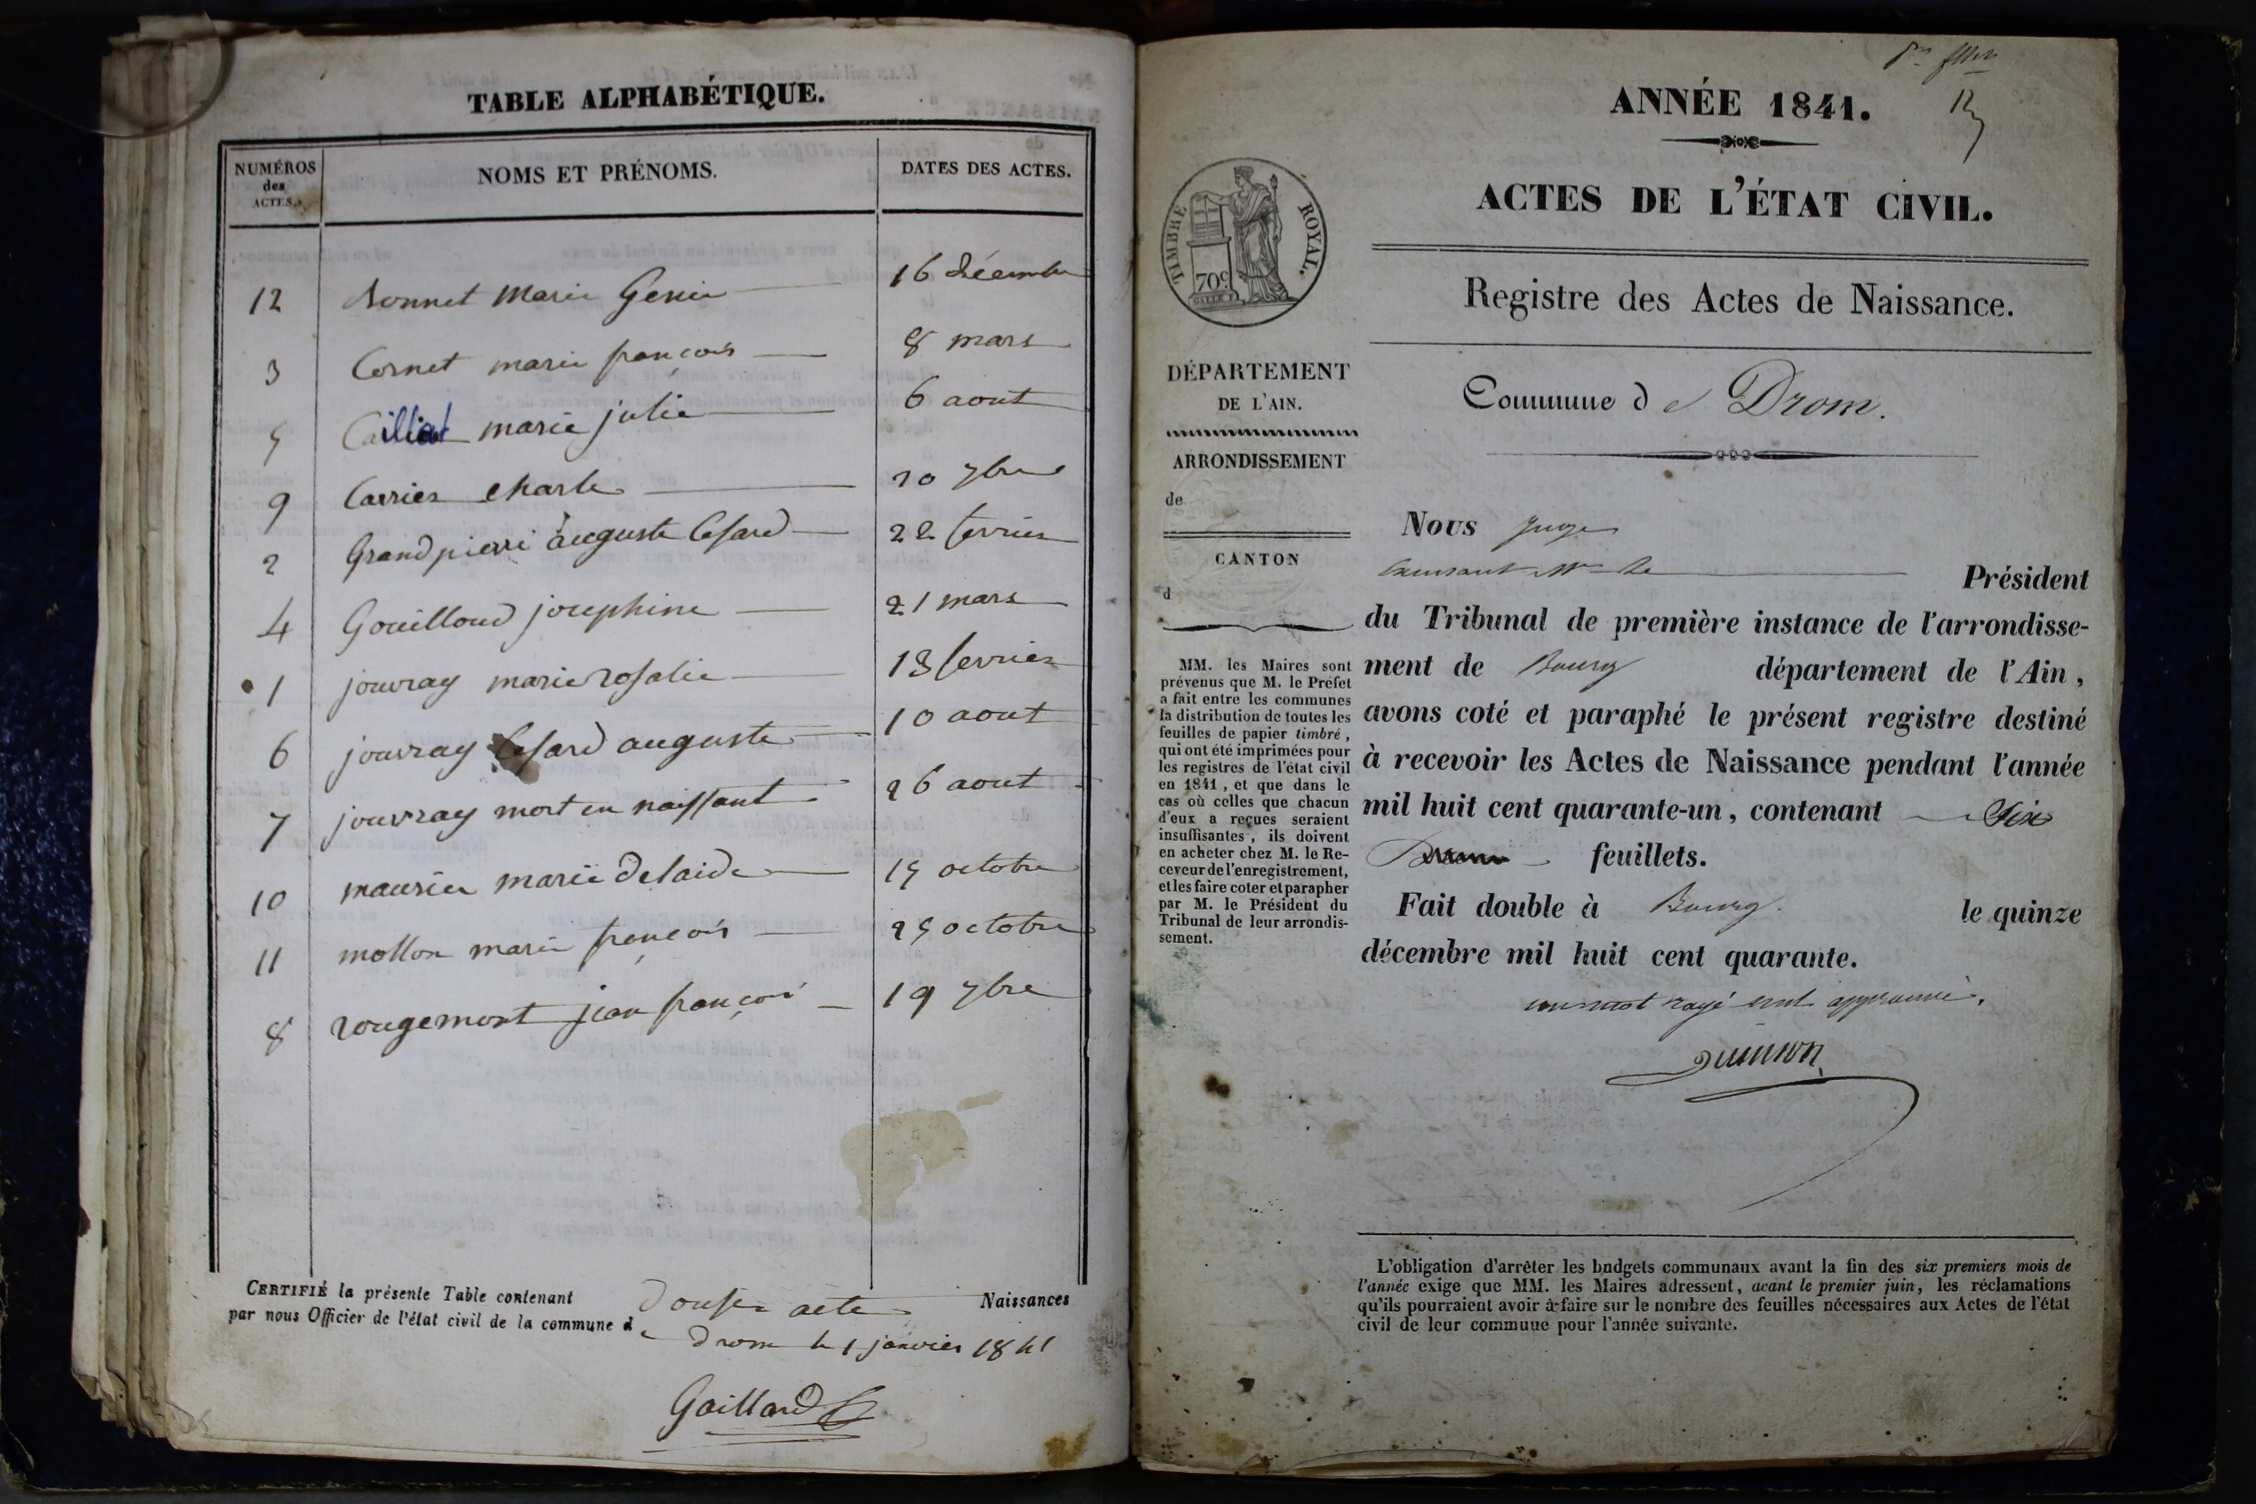 TABLE ALPHABÉTIQUE.
NUMÉROS des ACTES. NOMS ET PRÉNOMS. DATES DES ACTES.
12 Bonnet marie Genie 16 décembre
3 Cornet marie françois 8 mars
5 Cailliat marie julie 6 aout
9 Carrier charle 20 7bre
2 Grandpierre auguste Cesard 22 fevrier
4 Gouilloud josephine 21 mars
1 jouvray marie rosalie 13 fevrier
6 jouvray Cesard auguste 10 aout
7 jouvray mort en naissant 26 aout
10 maurier marie delaide 15 octobre
11 mollon marie françois 25 octobre
8 rougemont jean françois 19 7bre
CERTIFIÉ la présente Table contenant douse acte Naissances
par nous Officier de l'état civil de la commune de
drom le 1 janvier 1841
Gaillard
ANNÉE 1841.
ACTES DE L'ÉTAT CIVIL.
TIMBRE ROYAL.
70c
Registre des Actes de Naissance.
DÉPARTEMENT
DE L'AIN.
ARRONDISSEMENT
de
CANTON
d
MM. les Maires sont
prévenus que M. le Préfet
a fait entre les communes
la distribution de toutes les
feuilles de papier timbré,
qui ont été imprimées pour
les registres de l'état civil
en 1841, et que dans le
cas où celles que chacun
d'eux a reçues seraient
insuffisantes, ils doivent
en acheter chez M. le Re-
ceveur de l'enregistrement,
et les faire coter et parapher
par M. le Président du
Tribunal de leur arrondis-
sement.
Commune de Drom.
Nous juge
Président
du Tribunal de première instance de l'arrondisse-
ment de Bourg département de l'Ain,
avons coté et paraphé le présent registre destiné
à recevoir les Actes de Naissance pendant l'année
mil huit cent quarante-un, contenant Six
feuillets.
Fait double à Bourg. le quinze
décembre mil huit cent quarante.
un mot rayé nul approuvé.
L'obligation d'arrêter les budgets communaux avant la fin des six premiers mois de
l'année exige que MM. les Maires adressent, avant le premier juin, les réclamations
qu'ils pourraient avoir à faire sur le nombre des feuilles nécessaires aux Actes de l'état
civil de leur commune pour l'année suivante.